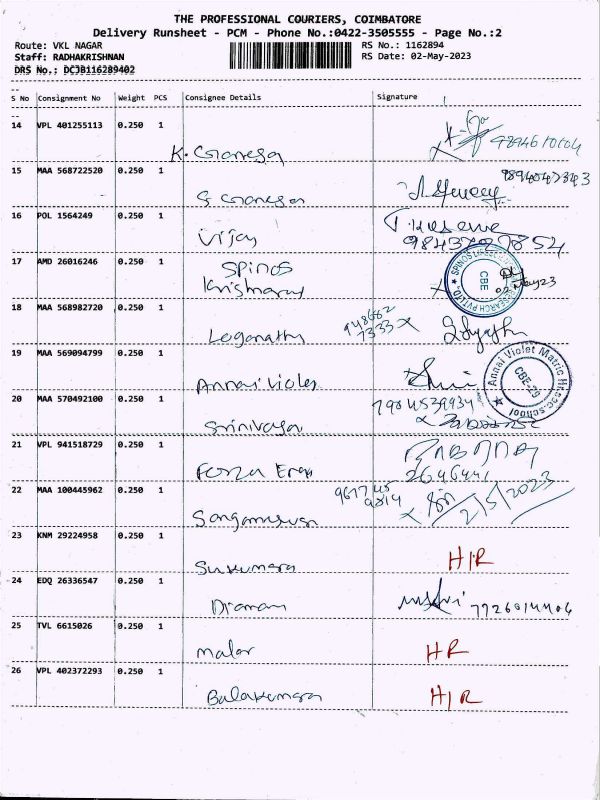 THE PROFESSIONAL COURIERS, COIMBATORE
Delivery Runsheet - PCM - Phone No.:0422-3505555 - Page No.:2
Route: VKL NAGAR RS No.: 1162894
Staff: RADHAKRISHNAN RS Date: 02-May-2023
DRS No.: DCJB116289402
S No Consignment No Weight PCS Consignee Details Signature
14 VPL 401255113 0.250 1
K. Ganesa
15 MAA 568722520 0.250 1
S Ganesan
16 POL 1564249 0.250 1
Vijay
17 AMD 26016246 0.250 1 SPINOS
SPINOS RESEARCH PVT LTD CBE
02 May 23
18 MAA 568982720 0.250 1
Loganathn
19 MAA 569094799 0.250 1
Annai Violet
Annai Violet Matric Hr.sec.school CBE-29
20 MAA 570492100 0.250 1
Srinivasa
21 VPL 941518729 0.250 1
Forza
2646441
22 MAA 100445962 0.250 1
2/5/2023
23 KNM 29224958 0.250 1 H/R
Sukumara
24 EDQ 26336547 0.250 1
25 TVL 6615026 0.250 1
malar HR
26 VPL 402372293 0.250 1
Balakumara H/R